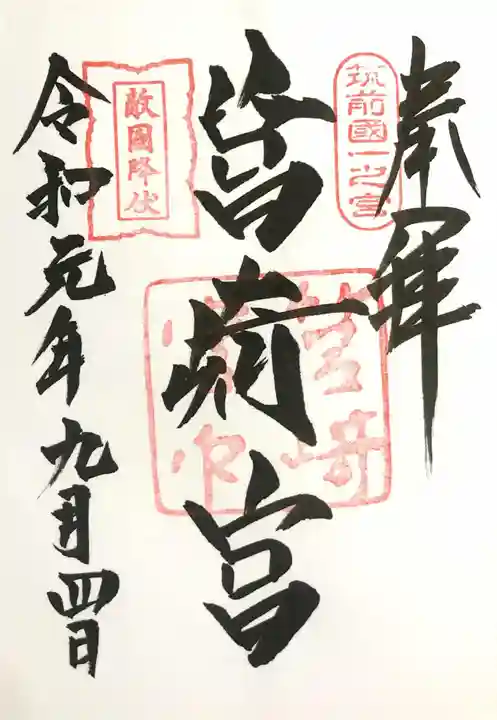 奉拝
筑前國一之宮
筥崎宮
敵國降伏
令和元年九月四日